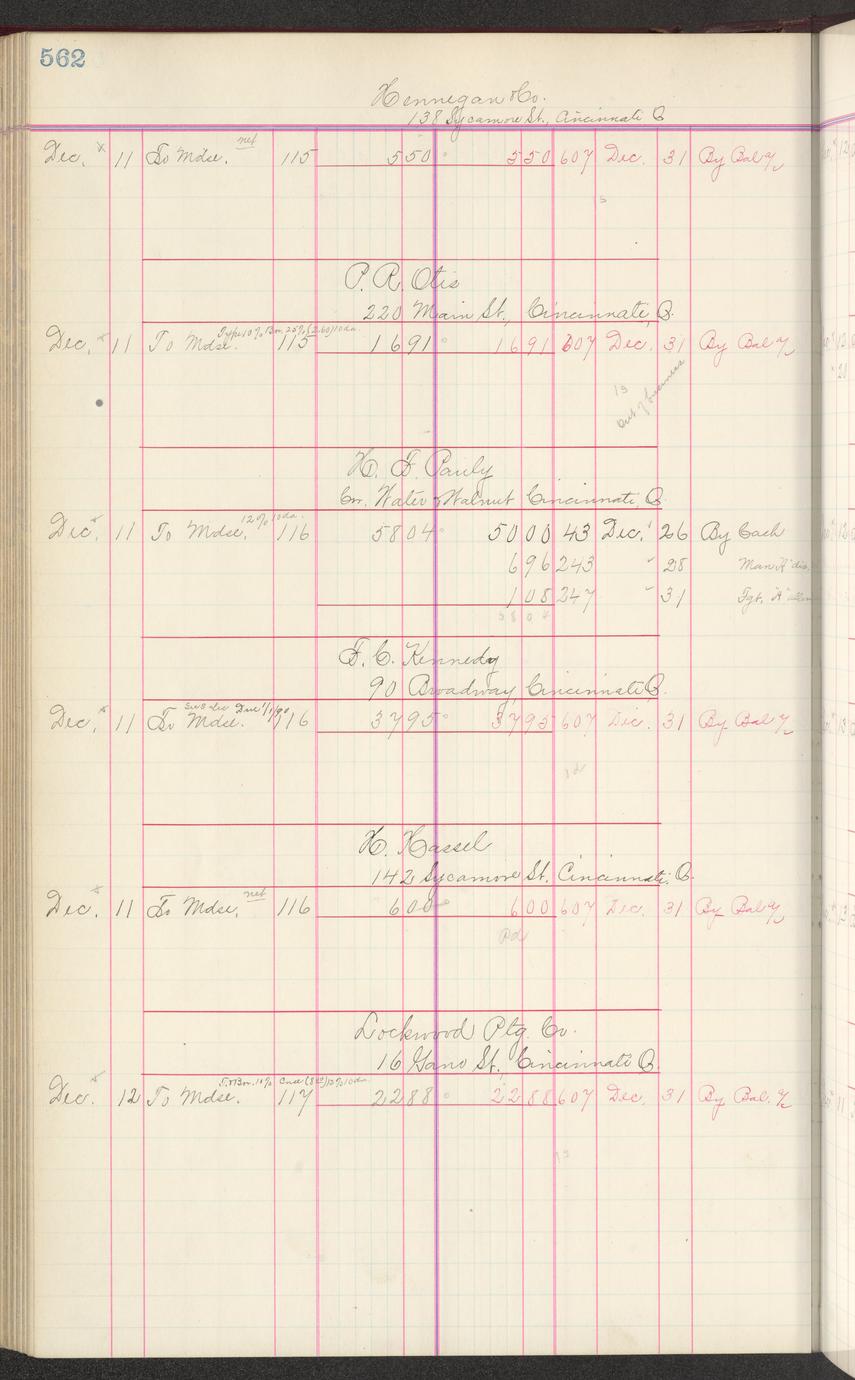 562
Hennegan & Co.
138 Sycamore St., Cincinnati O
Dec. 11 To Mdse. net 115 5 50 5 50 607 Dec. 31 By Bal %
P. R. Otis
220 Main St., Cincinnati, O.
Type 10% Bor. 25% (2.60) 10 da.
Dec. 11 To Mdse. 115 16 91 16 91 607 Dec. 31 By Bal %
Out of business
H. F. Pauly
Cor. Water & Walnut Cincinnati, O
12% 10 da.
Dec. 11 To Mdse. 116 58 04 50 00 43 Dec. 26 By Cash
6 96 243 " 28 Man "A" dis.
1 08 247 " 31 Fgt. "A"
58 04
F. C. Kennedy
90 Broadway, Cincinnati O.
Due 1/1/90
Dec. 11 To Mdse. 116 37 95 37 95 607 Dec. 31 By Bal %
H. Hassel
142 Sycamore St. Cincinnati. O.
Dec. 11 To Mdse. net 116 6 00 6 00 607 Dec. 31 By Bal %
Pd
Lockwood Ptg. Co.
16 Gano St. Cincinnati O.
Dec. 12 To Mdse. 117 22 88 22 88 607 Dec. 31 By Bal. %